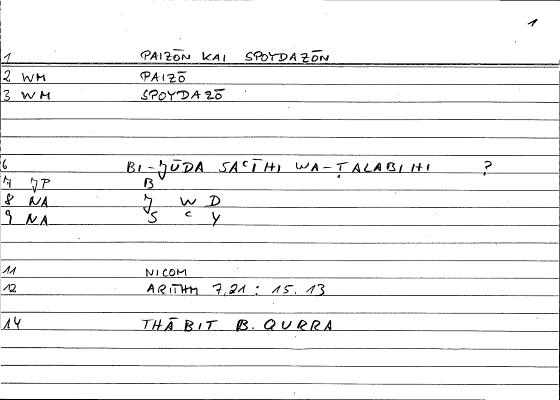 1
1 PAIZŌN KAI SPOYDAZŌN
2 WM PAIZŌ
3 WM SPOYDAZŌ
6 BI-ǦŪDA SAʿĪHI WA-ṬALABIHI ?
7 ǦP B
8 NA Ǧ W D
9 NA S ʿ Y
11 NICOM
12 ARITHM 7,21 : 15.13
14 THĀBIT B. QURRA